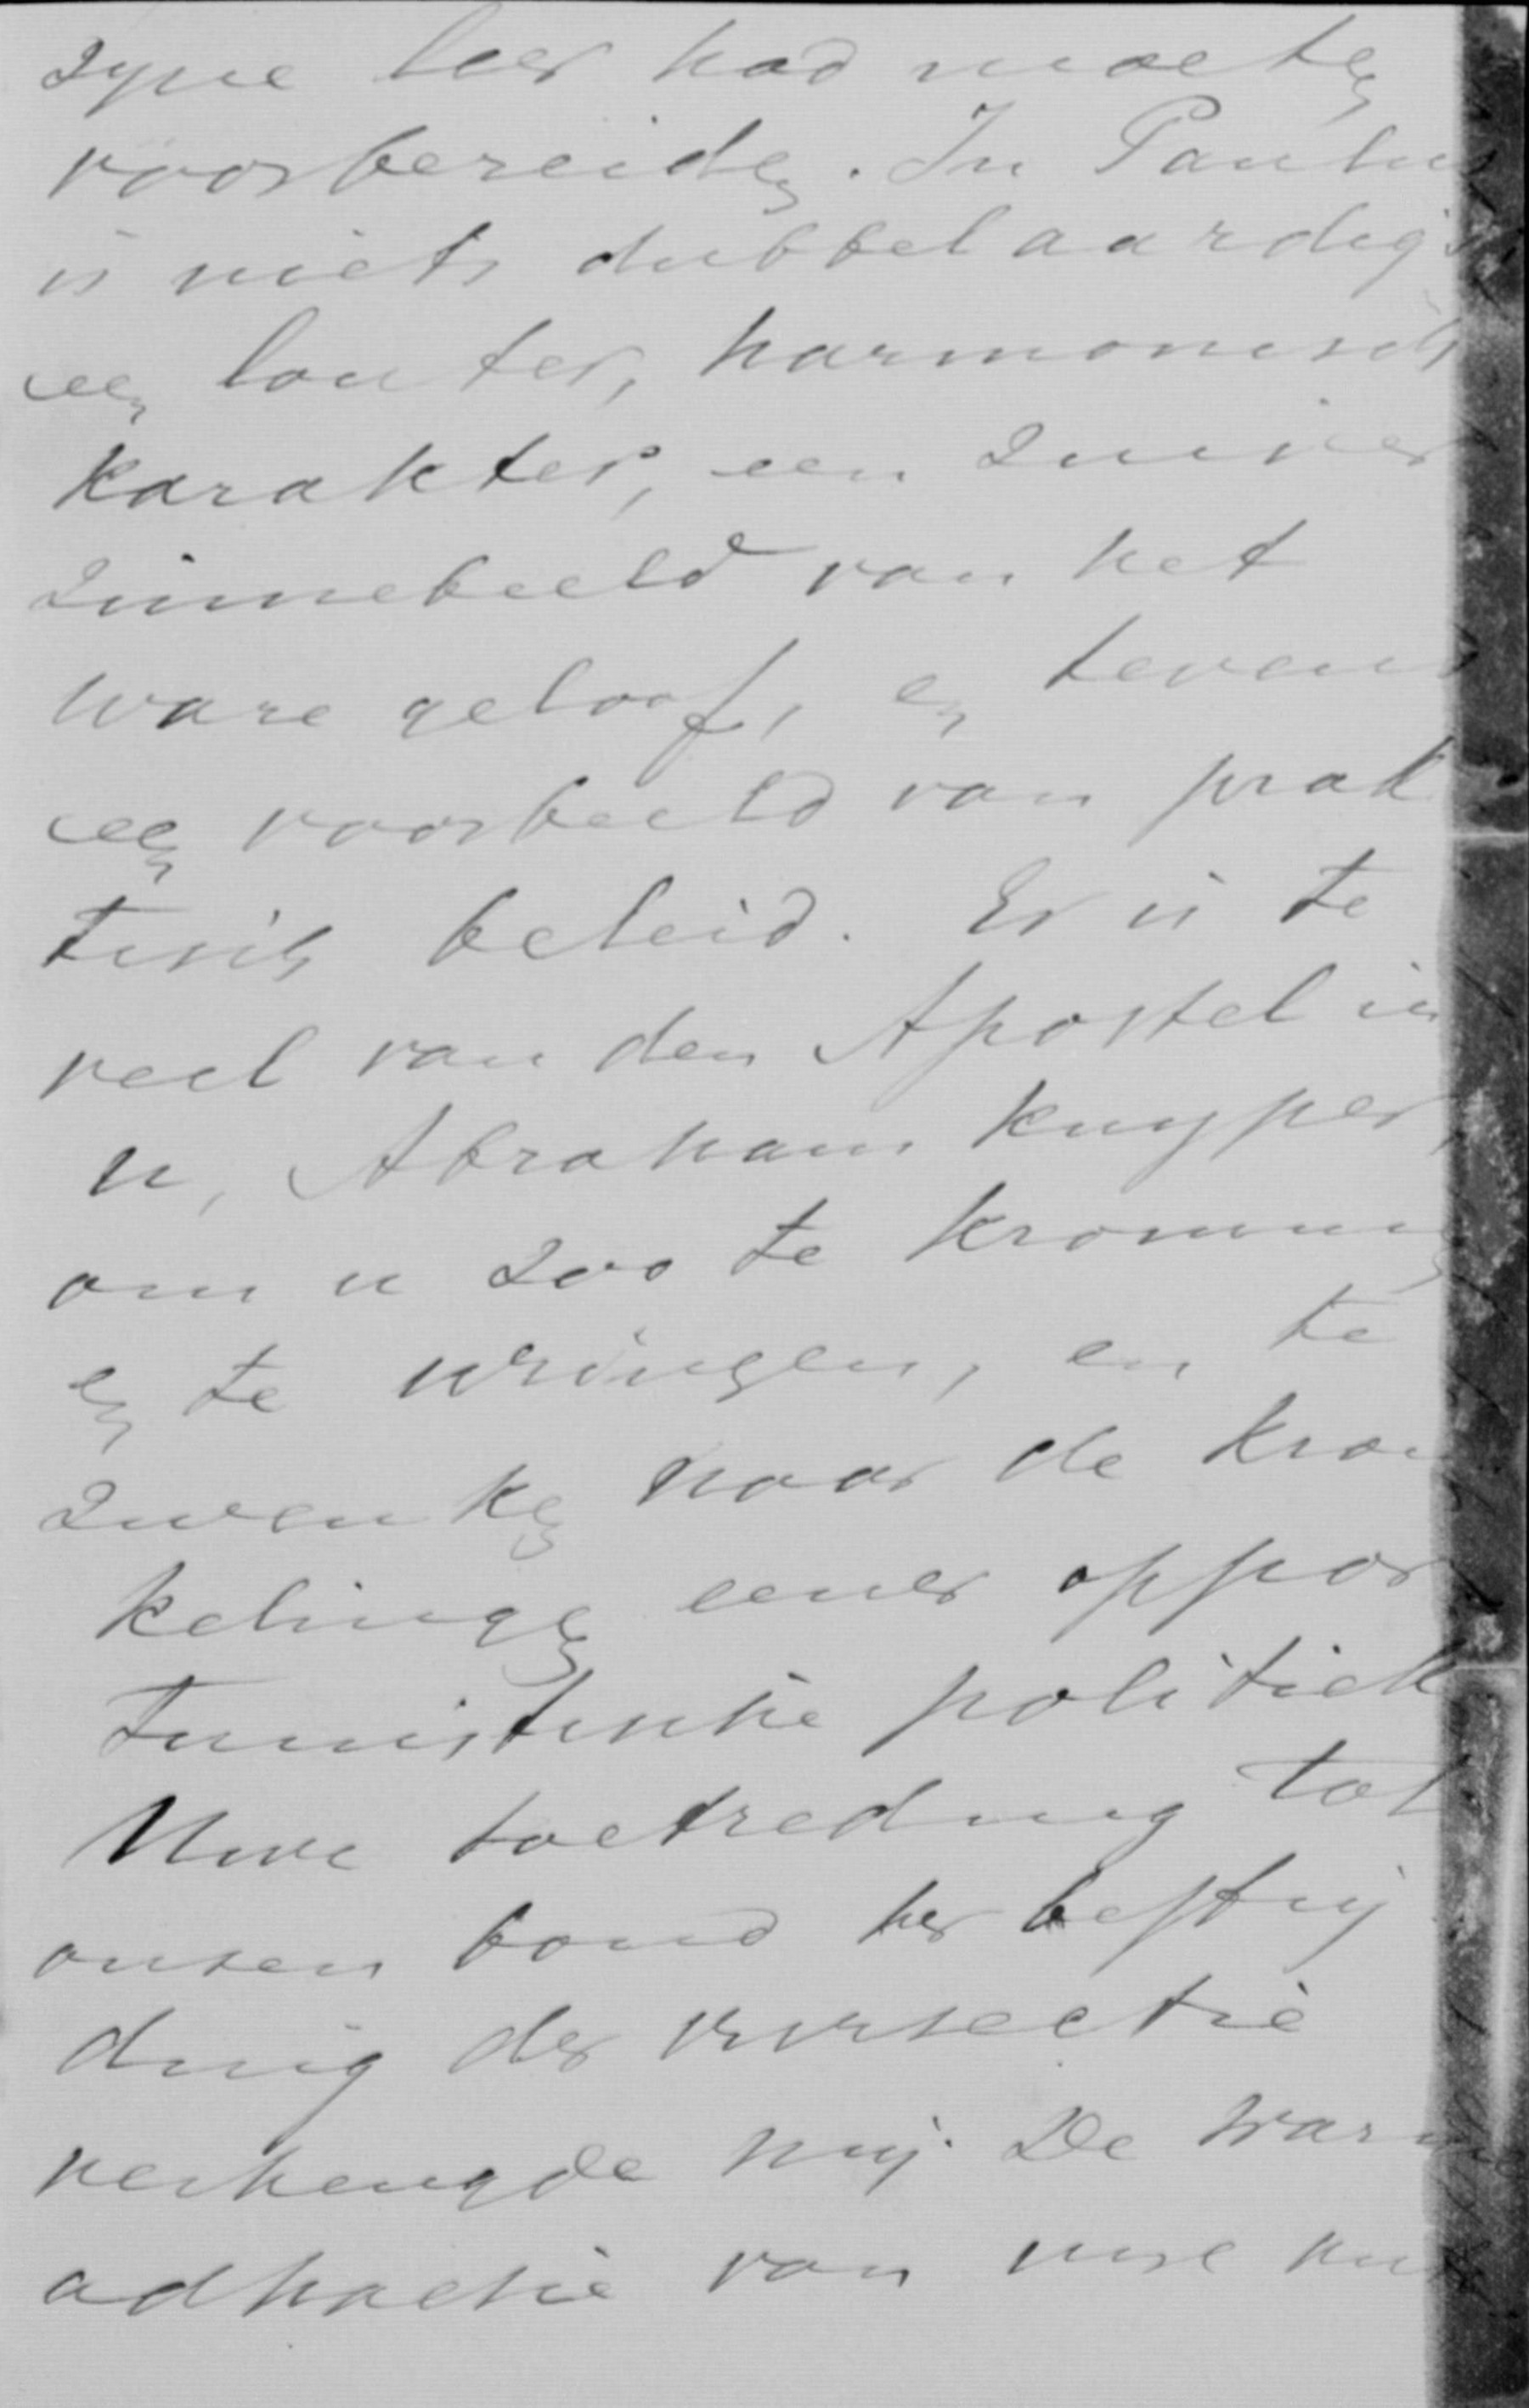 zyne leer had moeten
voorbereiden. In Paulus
is niets dubbelaardigs,
een louter, harmonisch
karakter, een zuiver
zinnebeeld van het
ware geloof, en tevens
een voorbeeld van prak
tisch beleid. Er is te
veel van den Apostel in
u, Abraham Kuyper,
om u zoo te krommen
en te wringen, en te
zwenken naar de kron
kelingen eener oppor
tunistische politiek
Uwe toetreding tot
onzen bond ter bestrij
ding der vivisectie
verheugde mij. De warme
adhaesie van uwe